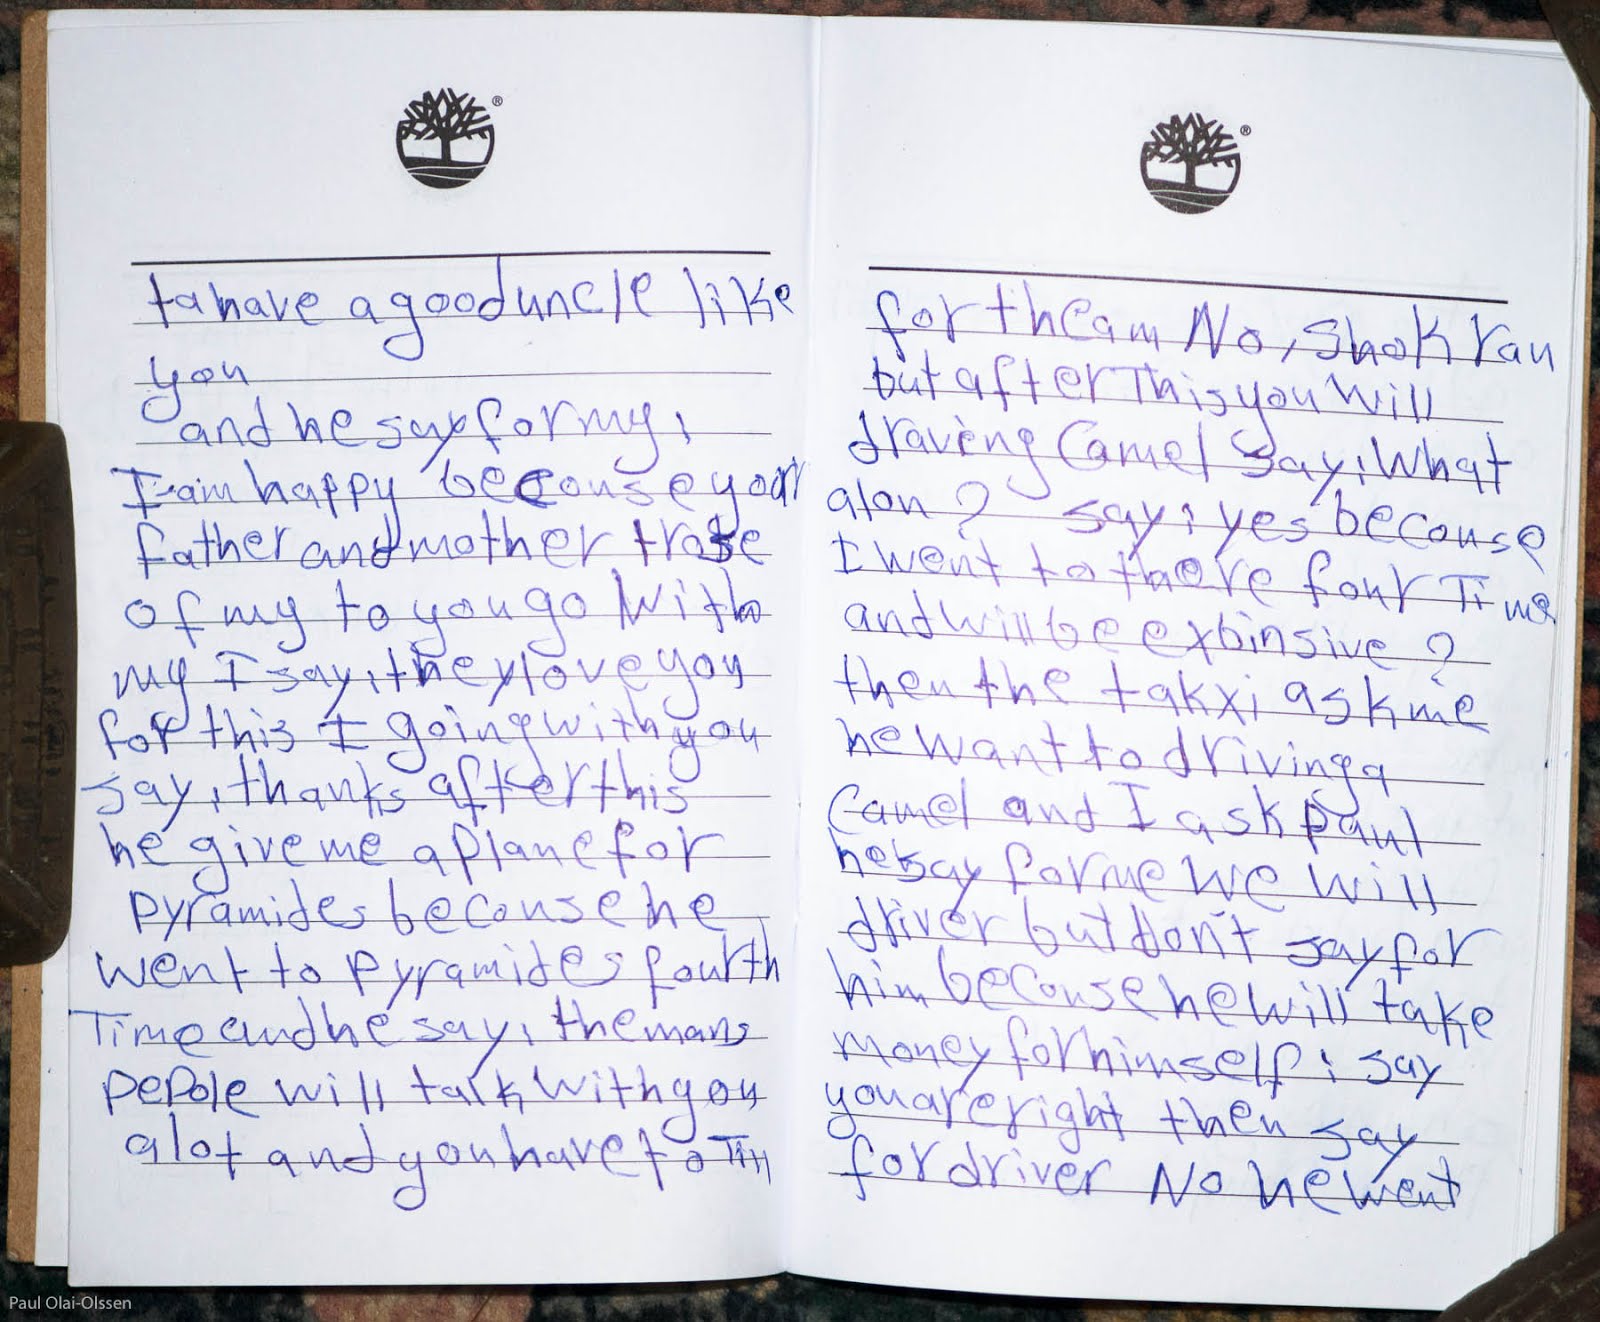 ta have a good uncle like
you
and he say for my,
I am happy becouse your
father and mother trase
of my to you go With
my I say, they love you
for this I going with you
say, thanks after this
he give me a plane for
pyramides becouse he
went to pyramides fourth
Time and he say, the mans
pepole will talk with you
alot and you have to Till
for theam No, Shok ran
but after This you Will
draving Camel Say, What
alon ? say, yes becouse
I went to there four Time
and will be exbinsive ?
then the takxi ask me
he want to driving a
Camel and I ask paul
he say for me we will
driver but don't say for
him becouse he will take
money for himself, say
you are right then say
for driver No he went
Paul Olai-Olssen
®
®